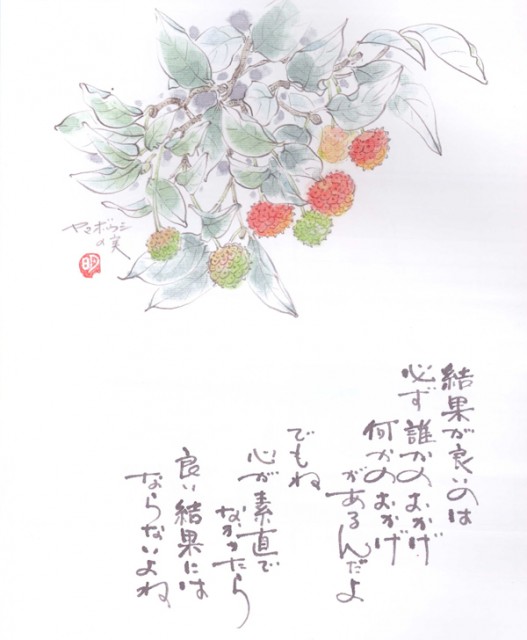 ヤマボウシ
の実
明
結果が良いのは
必ず誰かのおかげ
何かのおかげ
があるんだよ
でもね
心が素直で
なかったら
良い結果には
ならないよね